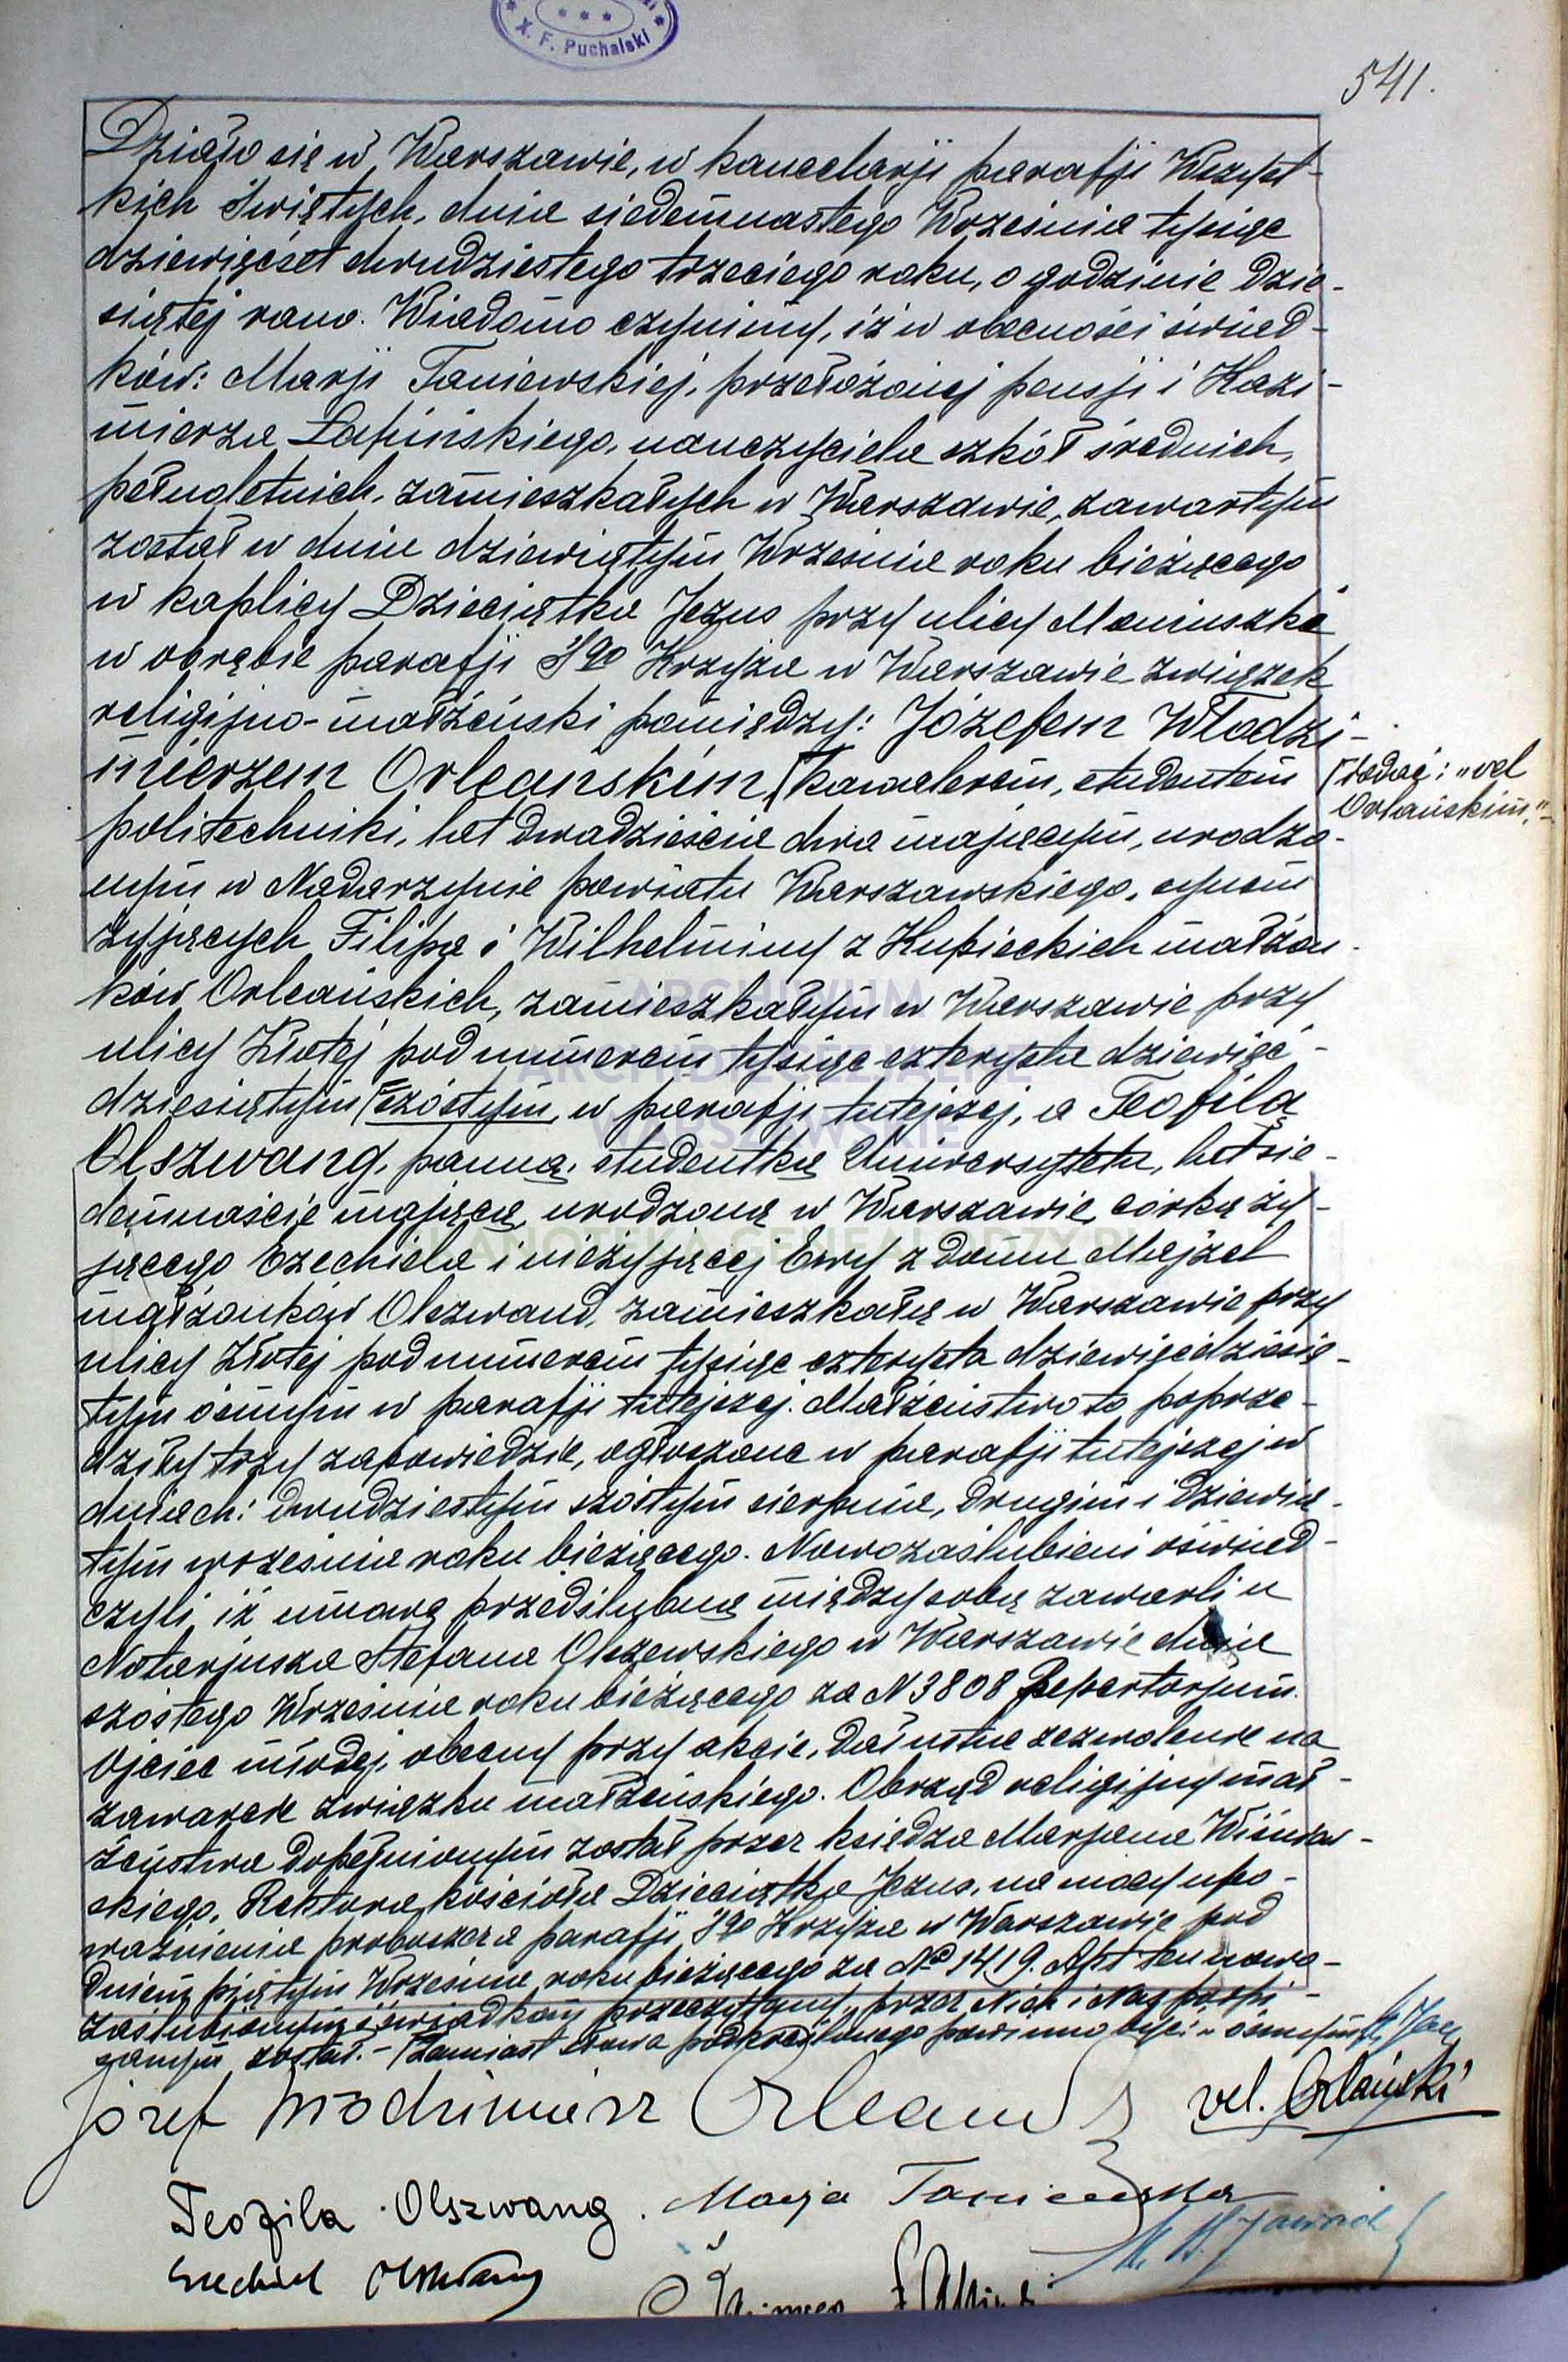 X. F. Puchalski
541.
Działo się w Warszawie, w kancelarji parafji Wszyst-
kich Świętych, dnia siedemnastego Września tysiąc
dziewięćset dwudziestego trzeciego roku, o godzinie dzie-
siątej rano. Wiadomo czynimy, iż w obecności świad-
ków: Marji Taniewskiej, przełożonej pensji i Kazi-
mierza Łapińskiego, nauczyciela szkół średnich,
pełnoletnich, zamieszkałych w Warszawie, zawartym
został w dniu dziewiątym Września roku bieżącego
w kaplicy Dzieciątka Jezus przy ulicy Moniuszki
w obrębie parafji Sgo Krzyża w Warszawie związek
religijno-małżeński pomiędzy: Józefem Włodzi-
mierzem Orleańskim, kawalerem, studentem
(dodać: "vel
Orlańskim,"
politechniki, lat dwadzieścia dwa mającym, urodzo-
nym w Nadarzynie powiatu Warszawskiego, synem
żyjących Filipa i Wilhelminy z Kupieckich małżon-
ków Orleańskich, zamieszkałym w Warszawie przy
ulicy Złotej pod numerem tysiąc czterysta dziewięć-
dziesiątym szóstym, w parafji tutejszej, a Teofilą
Olszwang, panną, studentką Uniwersytetu, lat sie-
demnaście mającą, urodzoną w Warszawie, córką ży-
jącego Ezechiela i nieżyjącej Ewy z domu Majzel
małżonków Olszwang, zamieszkałą w Warszawie przy
ulicy Złotej pod numerem tysiąc czterysta dziewięćdziesią-
tym ósmym w parafji tutejszej. Małżeństwo to poprze-
dziły trzy zapowiedzie, ogłoszone w parafji tutejszej w
dniach: dwudziestym szóstym sierpnia, drugim i dziewią-
tym września roku bieżącego. Nowozaślubieni oświad-
czyli, iż umowę przedślubną między sobą zawarli u
Notarjusza Stefana Olszewskiego w Warszawie dnia
szóstego Września roku bieżącego za N 3808 Repertorjum.
Ojciec młodej, obecny przy akcie, dał ustne zezwolenie na
zawarcie związku małżeńskiego. Obrzęd religijny mał-
żeństwa dopełnionym został przez księdza Marjana
skiego, Rektora kościoła Dzieciątka Jezus, na mocy upo-
ważnienia proboszcza parafji Sgo Krzyża w Warszawie pod
dniem piątym Września roku bieżącego za No 1419. Akt ten nowo-
zaślubionym i świadkom przeczytany, przez Nich i Nas podpi-
sanym został. - (Zamiast słowa podkreślonego powinno być: "ósmym
Józef Włodzimierz Orleański vel. Orlański
Teofila Olszwang. Marja Taniewska
Ezechiel Olszwang
ARCHIWUM
ARCHIDIECEZJALNE
WARSZAWSKIE
KANOTEKA.GENEALODZY.PL